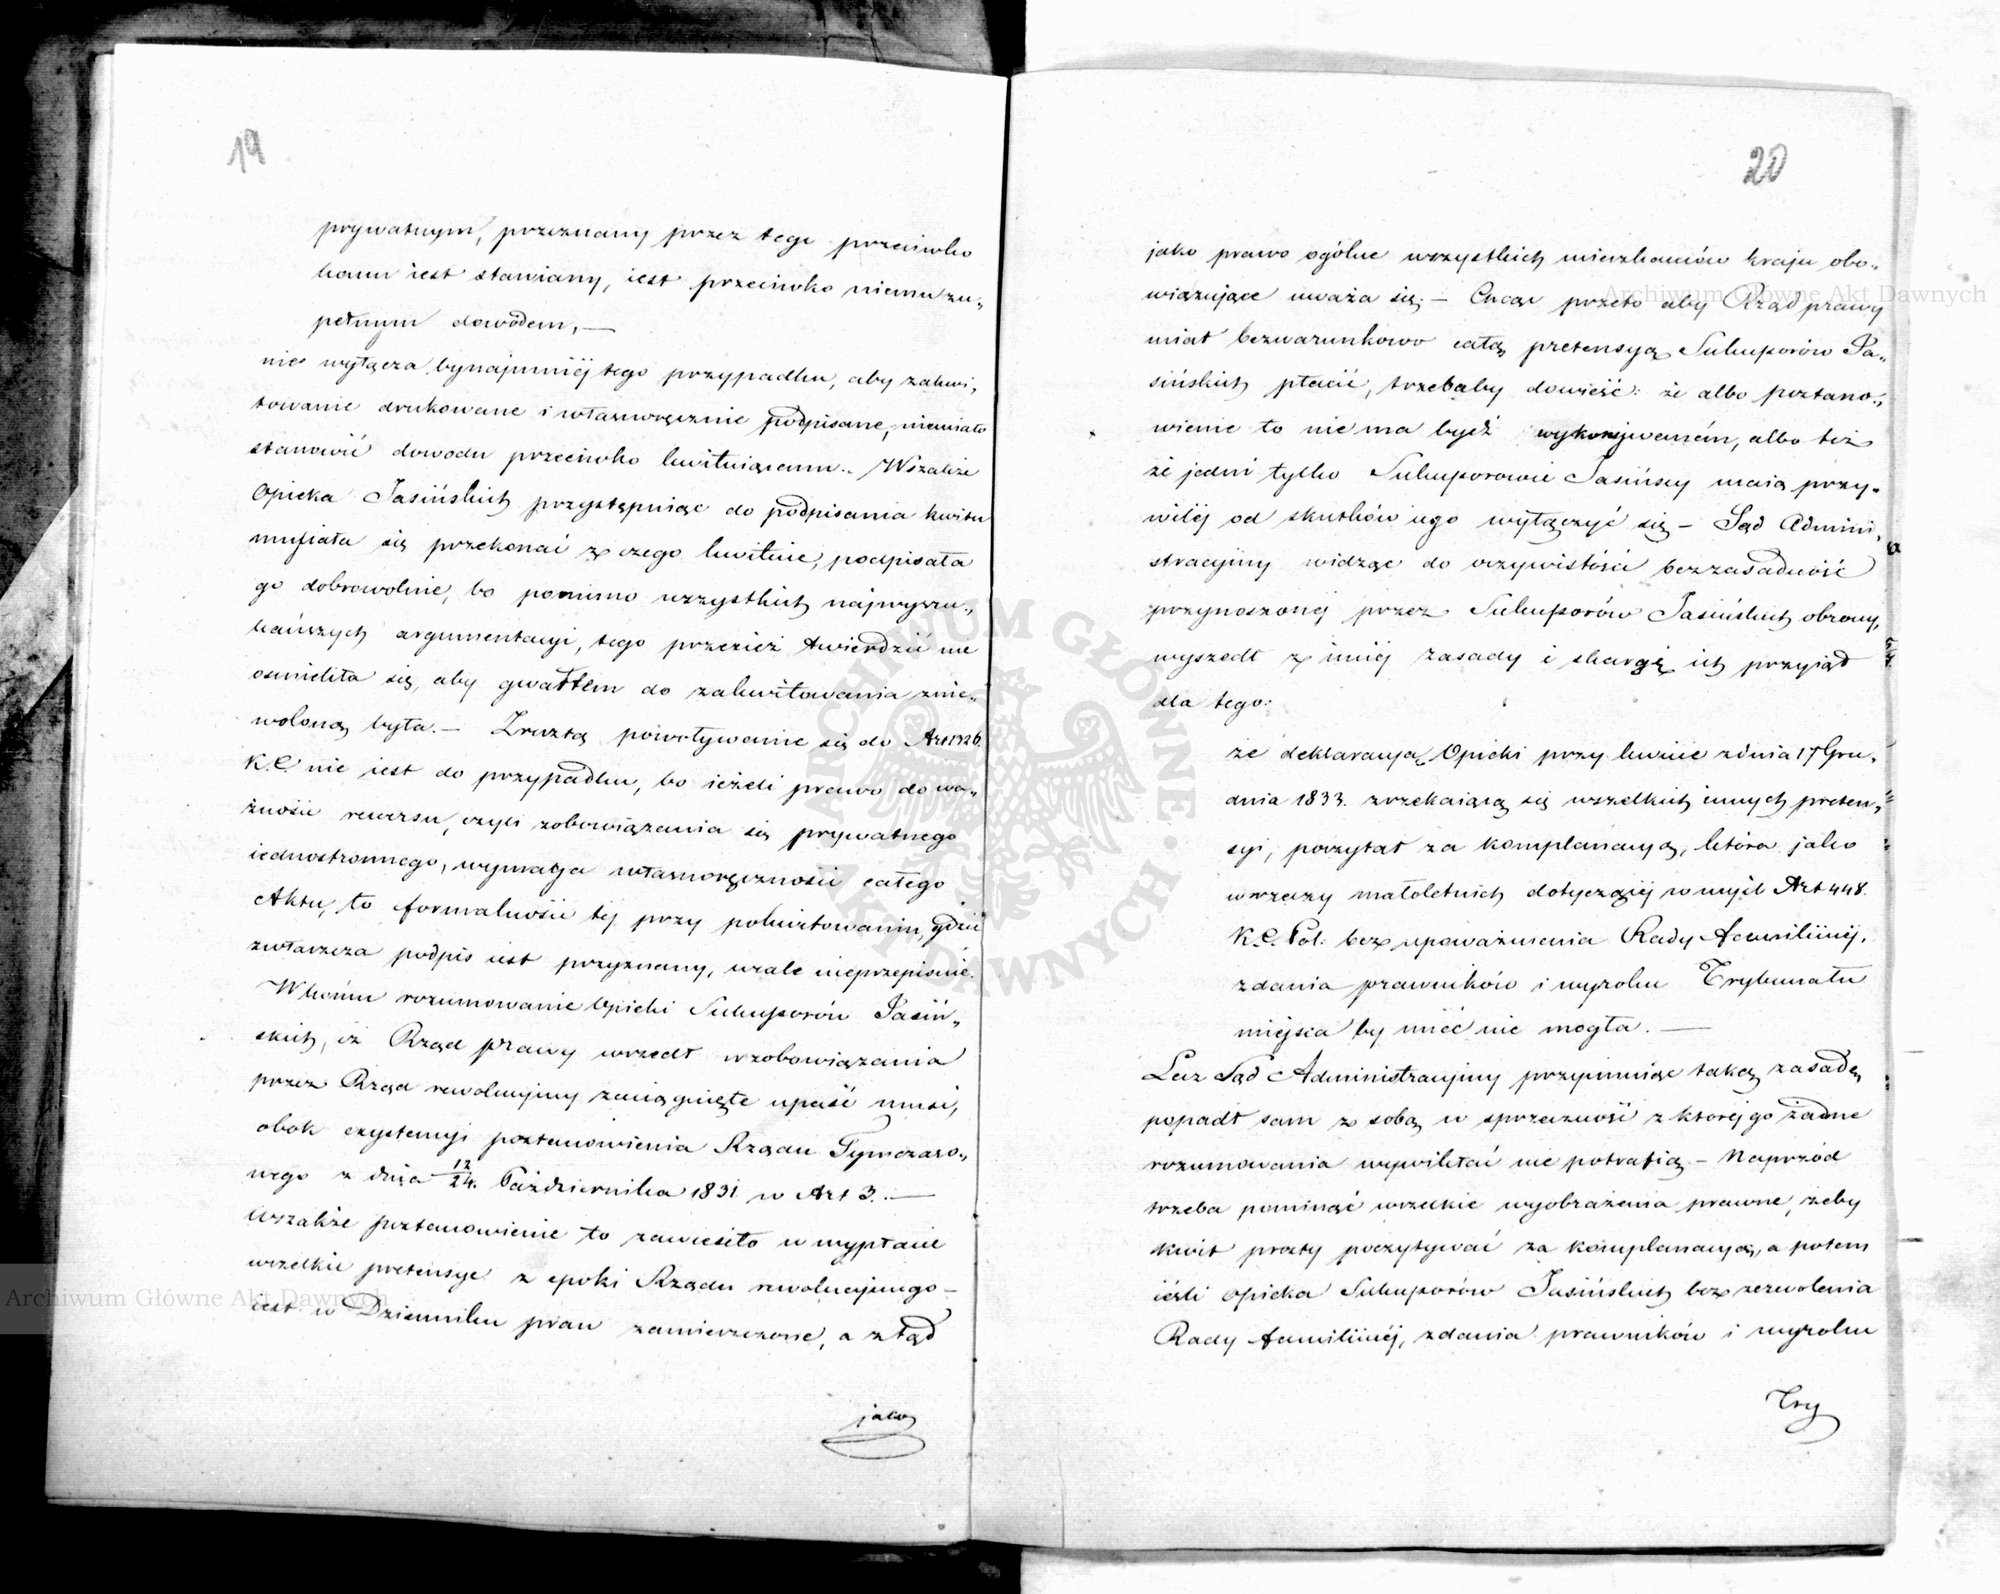 19
prywatnym, przyznany przez tego przeciwko
komu iest stawiany, iest przeciwko niemu zu„
pełnym dowodem, —
nie wyłącza bynajmniéj tego przypadku, aby zakwi„
towanie drukowane i własnoręcznie podpisane, niemiało
stanowić dowodu przeciwko kwituiącemu. Wszakże
Opieka Jasińskich przystępuiąc do podpisania kwitu
musiała się przekonać z czego kwituie, podpisała
go dobrowolnie, bo pomimo wszystkich najwyszu„
kańszych argumentacyi, tego przecież twierdzić nie
ośmieliła się, aby gwałtem do zakwitowania znie„
woloną była. — Zresztą powoływanie się do Art 1326.
K.C. nie iest do przypadku, bo ieżeli prawo do wa„
żności rewersu, czyli zobowiązania się prywatnego
iednostronnego, wymaga własnoręczności całego
Aktu, to formalności téj przy pokwitowaniu, gdzie
zwłaszcza podpis iest przyznany, wcale nieprzepisuie.
W końcu rozumowanie Opieki Sukcessorów Jasiń„
skich, iż Rząd prawy wszedł w zobowiązania
przez Rząd rewolucyiny zaciągnięte upaść musi,
obok exystencyi postanowienia Rządu Tymczaso„
wego z dnia 12/24. Października 1831. w Art 3. —
Wszakże postanowienie to zawiesiło w wypłacie
wszelkie pretensye z epoki Rządu rewolucyinego —
iest w Dzienniku praw zamieszczone, a ztąd
jako
20
jako prawo ogólne wszystkich mieszkańców kraju obo„
wiązujące uważa się; — Chcąc przeto aby Rząd prawy
miał bezwarunkowo całą pretensyą Sukcessorów Ja„
sińskich płacić, trzebaby dowieść: że albo postano„
wienie to nie ma bydź wykonywaném, albo też
że jedni tylko Sukcessorowie Jasińscy maią przy„
wiléj od skutków iego wyłączyć się — Sąd Admini„
stracyiny widząc do oczywistości bezzasadność
przynoszonéj przez Sukcessorów Jasińskich obrony,
wyszedł z innéj zasady i skargę ich przyiął
dla tego:
że deklaracya Opieki przy kwicie z dnia 17 Gru„
dnia 1833. zrzekaiącą się wszelkich innych preten„
syi, poczytał za komplanacyą, która jako
w rzeczy małoletnich dotyczącéj w myśl Art 448.
K.C. Pol: bez upoważnienia Rady Familiinéj,
zdania prawników i wyroku Trybunału
miejsca by mieć nie mogła. —
Lecz Sąd Administracyiny przyimuiąc taką zasadę,
popadł sam z sobą w sprzeczność z któréj go żadne
rozumowania wywikłać nie potrafią — Naprzód
trzeba pominąć wszelkie wyobrażenia prawne, żeby
kwit prosty poczytywać za komplanacyą, a potem
ieśli Opieka Sukcessorów Jasińskich bez zezwolenia
Rady familiinéj, zdania prawników i wyroku
Try
Archiwum Główne Akt Dawnych
Archiwum Główne Akt Dawnych
ARCHIWUM GŁÓWNE AKT DAWNYCH